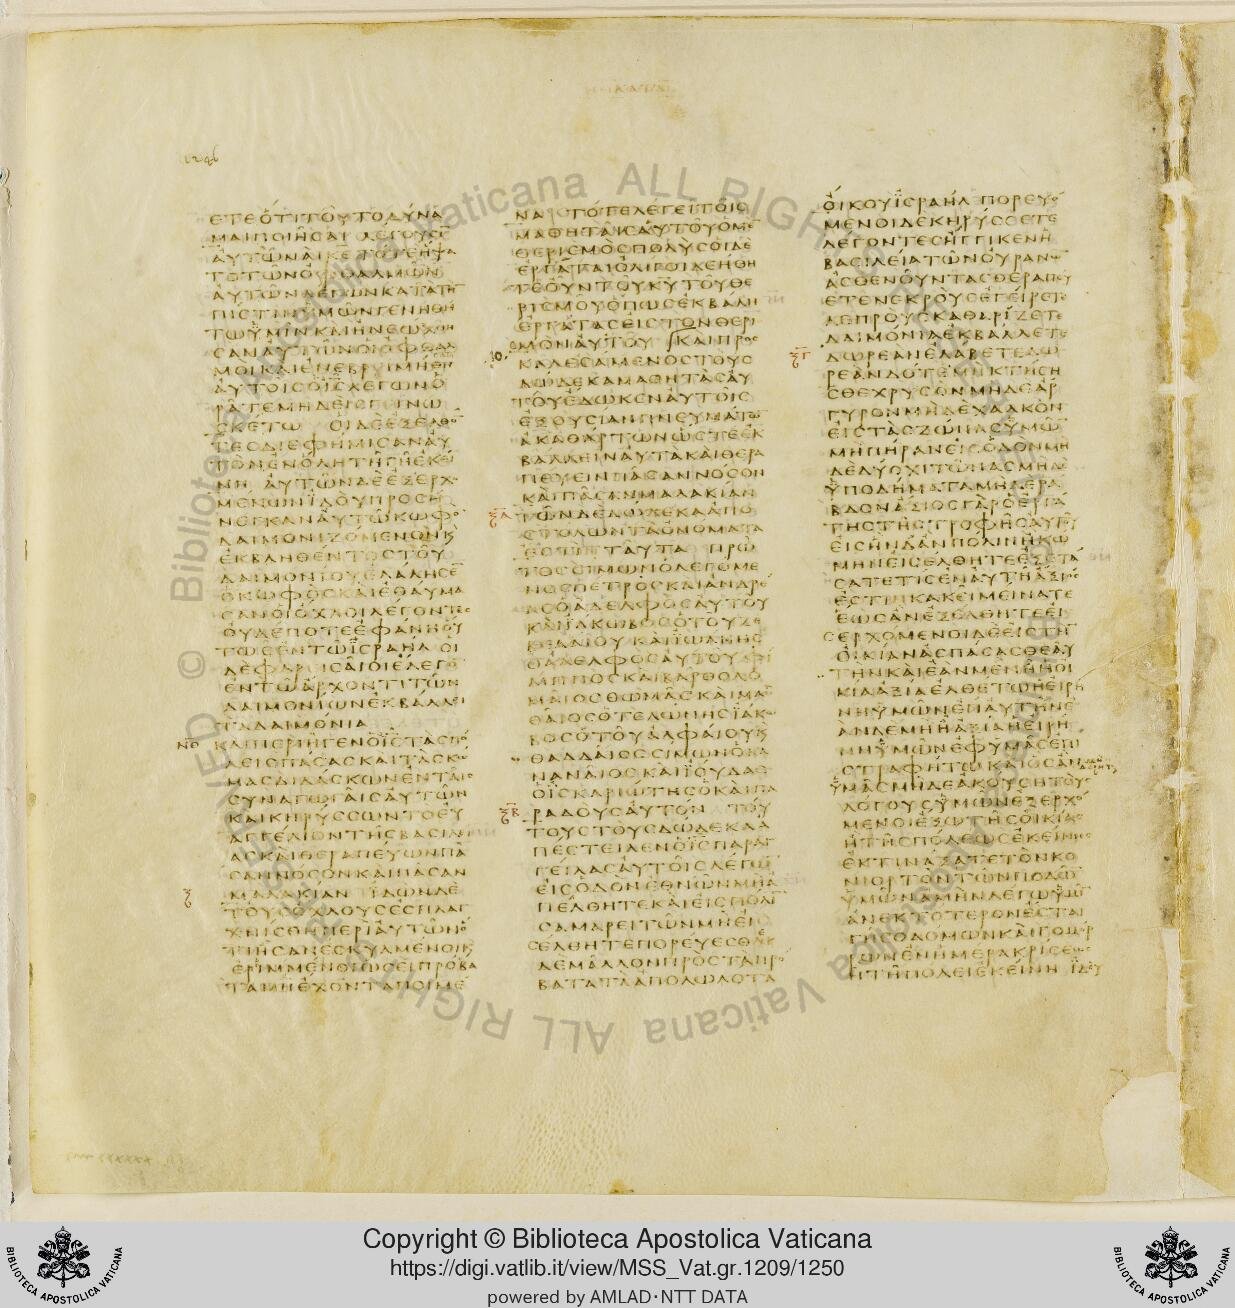 ΕΤΕΟΤΙΤΟΥΤΟΔΥΝΑ
ΜΑΙΠΟΙΗϹΑΙ ΛΕΓΟΥϹΙ
ΑΥΤΩΝΑΙΚΕ ΤΟΤΕΗΨΑ
ΤΟΤΩΝΟΦΘΑΛΜΩΝ
ΑΥΤΩΝΛΕΓΩΝΚΑΤΑΤΗ
ΠΙϹΤΙΝΥΜΩΝΓΕΝΗΘΗ
ΤΩΥΜΙΝΚΑΙΗΝΕΩΧΘΗ
ϹΑΝΑΥΤΩΝΟΙΟΦΘΑΛ
ΜΟΙΚΑΙΕΝΕΒΡΙΜΗΘΗ
ΑΥΤΟΙϹΟΙϹΛΕΓΩΝΟ
ΡΑΤΕΜΗΔΕΙϹΓΕΙΝΩ
ϹΚΕΤΩ ΟΙΔΕΕΞΕΛΘΟ
ΤΕϹΔΙΕΦΗΜΙϹΑΝΑΥ
ΤΟΝΕΝΟΛΗΤΗΓΗΕΚΕΙ
ΝΗ ΑΥΤΩΝΔΕΕΞΕΡΧΟ
ΜΕΝΩΝΪΔΟΥΠΡΟϹΗ
ΝΕΓΚΑΝΑΥΤΩΚΩΦΟ
ΔΑΙΜΟΝΙΖΟΜΕΝΟΝΚ
ΕΚΒΛΗΘΕΝΤΟϹΤΟΥ
ΔΑΙΜΟΝΙΟΥΕΛΑΛΗϹΕ
ΟΚΩΦΟϹΚΑΙΕΘΑΥΜΑ
ϹΑΝΟΙΟΧΛΟΙΛΕΓΟΝΤΕϹ
ΟΥΔΕΠΟΤΕΕΦΑΝΗΟΥ
ΤΩϹΕΝΤΩΪϹΡΑΗΛ ΟΙ
ΔΕΦΑΡΙϹΑΙΟΙΕΛΕΓΟ
ΕΝΤΩΑΡΧΟΝΤΙΤΩΝ
ΔΑΙΜΟΝΙΩΝΕΚΒΑΛΛΕΙ
ΤΑΔΑΙΜΟΝΙΑ
ΝΘ ΚΑΙΠΕΡΙΗΓΕΝΟΪϹΤΑϹΠΟ
ΛΕΙϹΠΑϹΑϹΚΑΙΤΑϹΚΩ
ΜΑϹΔΙΔΑϹΚΩΝΕΝΤΑΙϹ
ϹΥΝΑΓΩΓΑΙϹΑΥΤΩΝ
ΚΑΙΚΗΡΥϹϹΩΝΤΟΕΥ
ΑΓΓΕΛΙΟΝΤΗϹΒΑϹΙΛΕΙ
ΑϹΚΑΙΘΕΡΑΠΕΥΩΝΠΑ
ϹΑΝΝΟϹΟΝΚΑΙΠΑϹΑΝ
Ξ ΜΑΛΑΚΙΑΝ ΪΔΩΝΔΕ
ΤΟΥϹΟΧΛΟΥϹΕϹΠΛΑΓ
ΧΝΙϹΘΗΠΕΡΙΑΥΤΩΝΟ
ΤΙΗϹΑΝΕϹΚΥΛΜΕΝΟΙΚ
ΕΡΙΜΜΕΝΟΙΩϹΕΙΠΡΟΒΑ
ΤΑΜΗΕΧΟΝΤΑΠΟΙΜΕ
ΝΑ ΤΟΤΕΛΕΓΕΙΤΟΙϹ
ΜΑΘΗΤΑΙϹΑΥΤΟΥΟΜΕ
ΘΕΡΙϹΜΟϹΠΟΛΥϹΟΙΔΕ
ΕΡΓΑΤΑΙΟΛΙΓΟΙΔΕΗΘΗ
ΤΕΟΥΝΤΟΥΚΥΤΟΥΘΕ
ΡΙϹΜΟΥΟΠΩϹΕΚΒΑΛΗ
ΕΡΓΑΤΑϹΕΙϹΤΟΝΘΕΡΙ
ΜΟΝΑΥΤΟΥ ΚΑΙΠΡΟϹ
ΚΑΛΕϹΑΜΕΝΟϹΤΟΥϹ
ΔΩΔΕΚΑΜΑΘΗΤΑϹΑΥ
ΤΟΥΕΔΩΚΕΝΑΥΤΟΙϹ
ΕΞΟΥϹΙΑΝΠΝΕΥΜΑΤΩ
ΑΚΑΘΑΡΤΩΝΩϹΤΕΕΚ
ΒΑΛΛΕΙΝΑΥΤΑΚΑΙΘΕΡΑ
ΠΕΥΕΙΝΠΑϹΑΝΝΟϹΟΝ
ΚΑΙΠΑϹΑΝΜΑΛΑΚΙΑΝ
ΞΑ ΤΩΝΔΕΔΩΔΕΚΑΑΠΟ
ϹΤΟΛΩΝΤΑΟΝΟΜΑΤΑ
ΕϹΤΙΝΤΑΥΤΑ ΠΡΩ
ΤΟϹϹΙΜΩΝΟΛΕΓΟΜΕ
ΝΟϹΠΕΤΡΟϹΚΑΙΑΝΔΡΕ
ΑϹΟΑΔΕΛΦΟϹΑΥΤΟΥ
ΚΑΙΪΑΚΩΒΟϹΟΤΟΥΖΕ
ΒΕΔΑΙΟΥΚΑΙΪΩΑΝΗϹ
ΟΑΔΕΛΦΟϹΑΥΤΟΥΦΙ
ΛΙΠΠΟϹΚΑΙΒΑΡΘΟΛΟ
ΜΑΙΟϹΘΩΜΑϹΚΑΙΜΑΘ
ΘΑΙΟϹΟΤΕΛΩΝΗϹΪΑΚΩ
ΒΟϹΟΤΟΥΑΛΦΑΙΟΥΚ
ΘΑΔΔΑΙΟϹϹΙΜΩΝΟΚΑ
ΝΑΝΑΙΟϹΚΑΙΪΟΥΔΑϹ
ΟΪϹΚΑΡΙΩΤΗϹΟΚΑΙΠΑ
ΞΒ ΡΑΔΟΥϹΑΥΤΟΝ ΤΟΥ
ΤΟΥϹΤΟΥϹΔΩΔΕΚΑΑ
ΠΕϹΤΕΙΛΕΝΟΪϹΠΑΡΑΓ
ΓΕΙΛΑϹΑΥΤΟΙϹΛΕΓΩ
ΕΙϹΟΔΟΝΕΘΝΩΝΜΗΑ
ΠΕΛΘΗΤΕΚΑΙΕΙϹΠΟΛΙ
ϹΑΜΑΡΕΙΤΩΝΜΗΕΙϹ
ΕΛΘΗΤΕΠΟΡΕΥΕϹΘΕ
ΔΕΜΑΛΛΟΝΠΡΟϹΤΑΠΡΟ
ΒΑΤΑΤΑΑΠΟΛΩΛΟΤΑ
ΟΙΚΟΥΪϹΡΑΗΛ ΠΟΡΕΥΟ
ΜΕΝΟΙΔΕΚΗΡΥϹϹΕΤΕ
ΛΕΓΟΝΤΕϹΗΓΓΙΚΕΝΗ
ΒΑϹΙΛΕΙΑΤΩΝΟΥΡΑΝΩ
ΑϹΘΕΝΟΥΝΤΑϹΘΕΡΑΠΕΥ
ΕΤΕΝΕΚΡΟΥϹΕΓΕΙΡΕΤΕ
ΛΕΠΡΟΥϹΚΑΘΑΡΙΖΕΤΕ
ΔΑΙΜΟΝΙΑΕΚΒΑΛΛΕΤΕ
ΞΓ ΔΩΡΕΑΝΕΛΑΒΕΤΕΔΩ
ΡΕΑΝΔΟΤΕΜΗΚΤΗϹΗ
ϹΘΕΧΡΥϹΟΝΜΗΔΕΑΡ
ΓΥΡΟΝΜΗΔΕΧΑΛΚΟΝ
ΕΙϹΤΑϹΖΩΝΑϹΥΜΩ
ΜΗΠΗΡΑΝΕΙϹΟΔΟΝΜΗ
ΔΕΔΥΟΧΙΤΩΝΑϹΜΗΔΕ
ΥΠΟΔΗΜΑΤΑΜΗΔΕΡΑ
ΒΔΟΝΑΞΙΟϹΓΑΡΟΕΡΓΑ
ΤΗϹΤΗϹΤΡΟΦΗϹΑΥΤΟΥ
ΕΙϹΗΝΔΑΝΠΟΛΙΝΗΚΩ
ΜΗΝΕΙϹΕΛΘΗΤΕΕΞΕΤΑ
ϹΑΤΕΤΙϹΕΝΑΥΤΗΑΞΙΟϹ
ΕϹΤΙΝΚΑΚΕΙΜΕΙΝΑΤΕ
ΕΩϹΑΝΕΞΕΛΘΗΤΕΕΙ
ϹΕΡΧΟΜΕΝΟΙΔΕΕΙϹΤΗ
ΟΙΚΙΑΝΑϹΠΑϹΑϹΘΕΑΥ
ΤΗΝΚΑΙΕΑΝΜΕΝΗΗΟΙ
ΚΙΑΑΞΙΑΕΛΘΕΤΩΗΕΙΡΗ
ΝΗΥΜΩΝΕΠΑΥΤΗΝΕ
ΑΝΔΕΜΗΗΑΞΙΑΗΕΙΡΗ
ΝΗΥΜΩΝΕΦΥΜΑϹΕΠΙ
ϹΤΡΑΦΗΤΩΚΑΙΟϹΑΝ
ΥΜΑϹΜΗΔΕΑΚΟΥϹΗΤΟΥϹ
ΛΟΓΟΥϹΥΜΩΝΕΞΕΡΧΟ
ΜΕΝΟΙΕΞΩΤΗϹΟΙΚΙΑϹ
ΗΤΗϹΠΟΛΕΩϹΕΚΕΙΝΗϹ
ΕΚΤΙΝΑΞΑΤΕΤΟΝΚΟ
ΝΙΟΡΤΟΝΤΩΝΠΟΔΩ
ΥΜΩΝΑΜΗΝΛΕΓΩΥΜΙ
ΑΝΕΚΤΟΤΕΡΟΝΕϹΤΑΙ
ΓΗϹΟΔΟΜΩΝΚΑΙΓΟΜΟΡ
ΡΩΝΕΝΗΜΕΡΑΚΡΙϹΕΩϹ
ΗΤΗΠΟΛΕΙΕΚΕΙΝΗ ΪΔΟΥ
© Biblioteca Apostolica Vaticana ALL RIGHTS RESERVED
Copyright © Biblioteca Apostolica Vaticana
https://digi.vatlib.it/view/MSS_Vat.gr.1209/1250
powered by AMLAD·NTT DATA
BIBLIOTECA APOSTOLICA VATICANA
BIBLIOTECA APOSTOLICA VATICANA